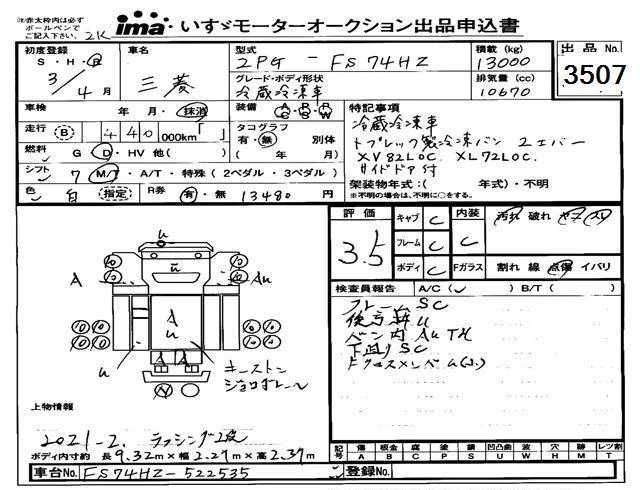 注)赤太枠内は必ず
ボールペンで
ご記入下さい。
2K
ima いすゞモーターオークション出品申込書
初度登録 車名 型式 積載 (kg) 出品 No.
S・H・R
3/4月
三菱
2PG-FS74HZ
13000
3507
グレード・ボディ形状 排気量 (cc)
冷蔵冷凍車
10670
車検 年 月・抹消 装備 A/C P/S R/W 特記事項
走行 (B) 440000km「 」 タコグラフ 有・無 別体 ( 年 月)
冷蔵冷凍車
トプレック製冷凍バン 2エバー
XV82LOC. XL72LOC.
サイドドア付
燃料 G D・HV 他( )
シフト 7 M/T・A/T・特殊 (2ペダル・3ペダル) 架装物年式:( 年式)・不明
※不明の場合は、不明に○をする。
色 白 (指定) R券 有・無 13480円
評価 3.5
キャブ C 内装 C 汚れ 破れ
フレーム C
ボディ C Fガラス 割れ 線 点傷 イバリ
検査員報告 A/C( ) B/T( )
フレームSC
ベン内 AuTH
下廻りSC
A
Au
u
キーストン
ジョロダレール
上物情報
2021-2. ラッシング2段
ボディ内寸約 長 9.32m×幅 2.27m×高 2.37m
記号 傷 板金 腐 塗 錆 凹凸曲 波 穴 跡 レツ割
A B C P S U W H M T
車台No. FS74HZ-522535
登録No.